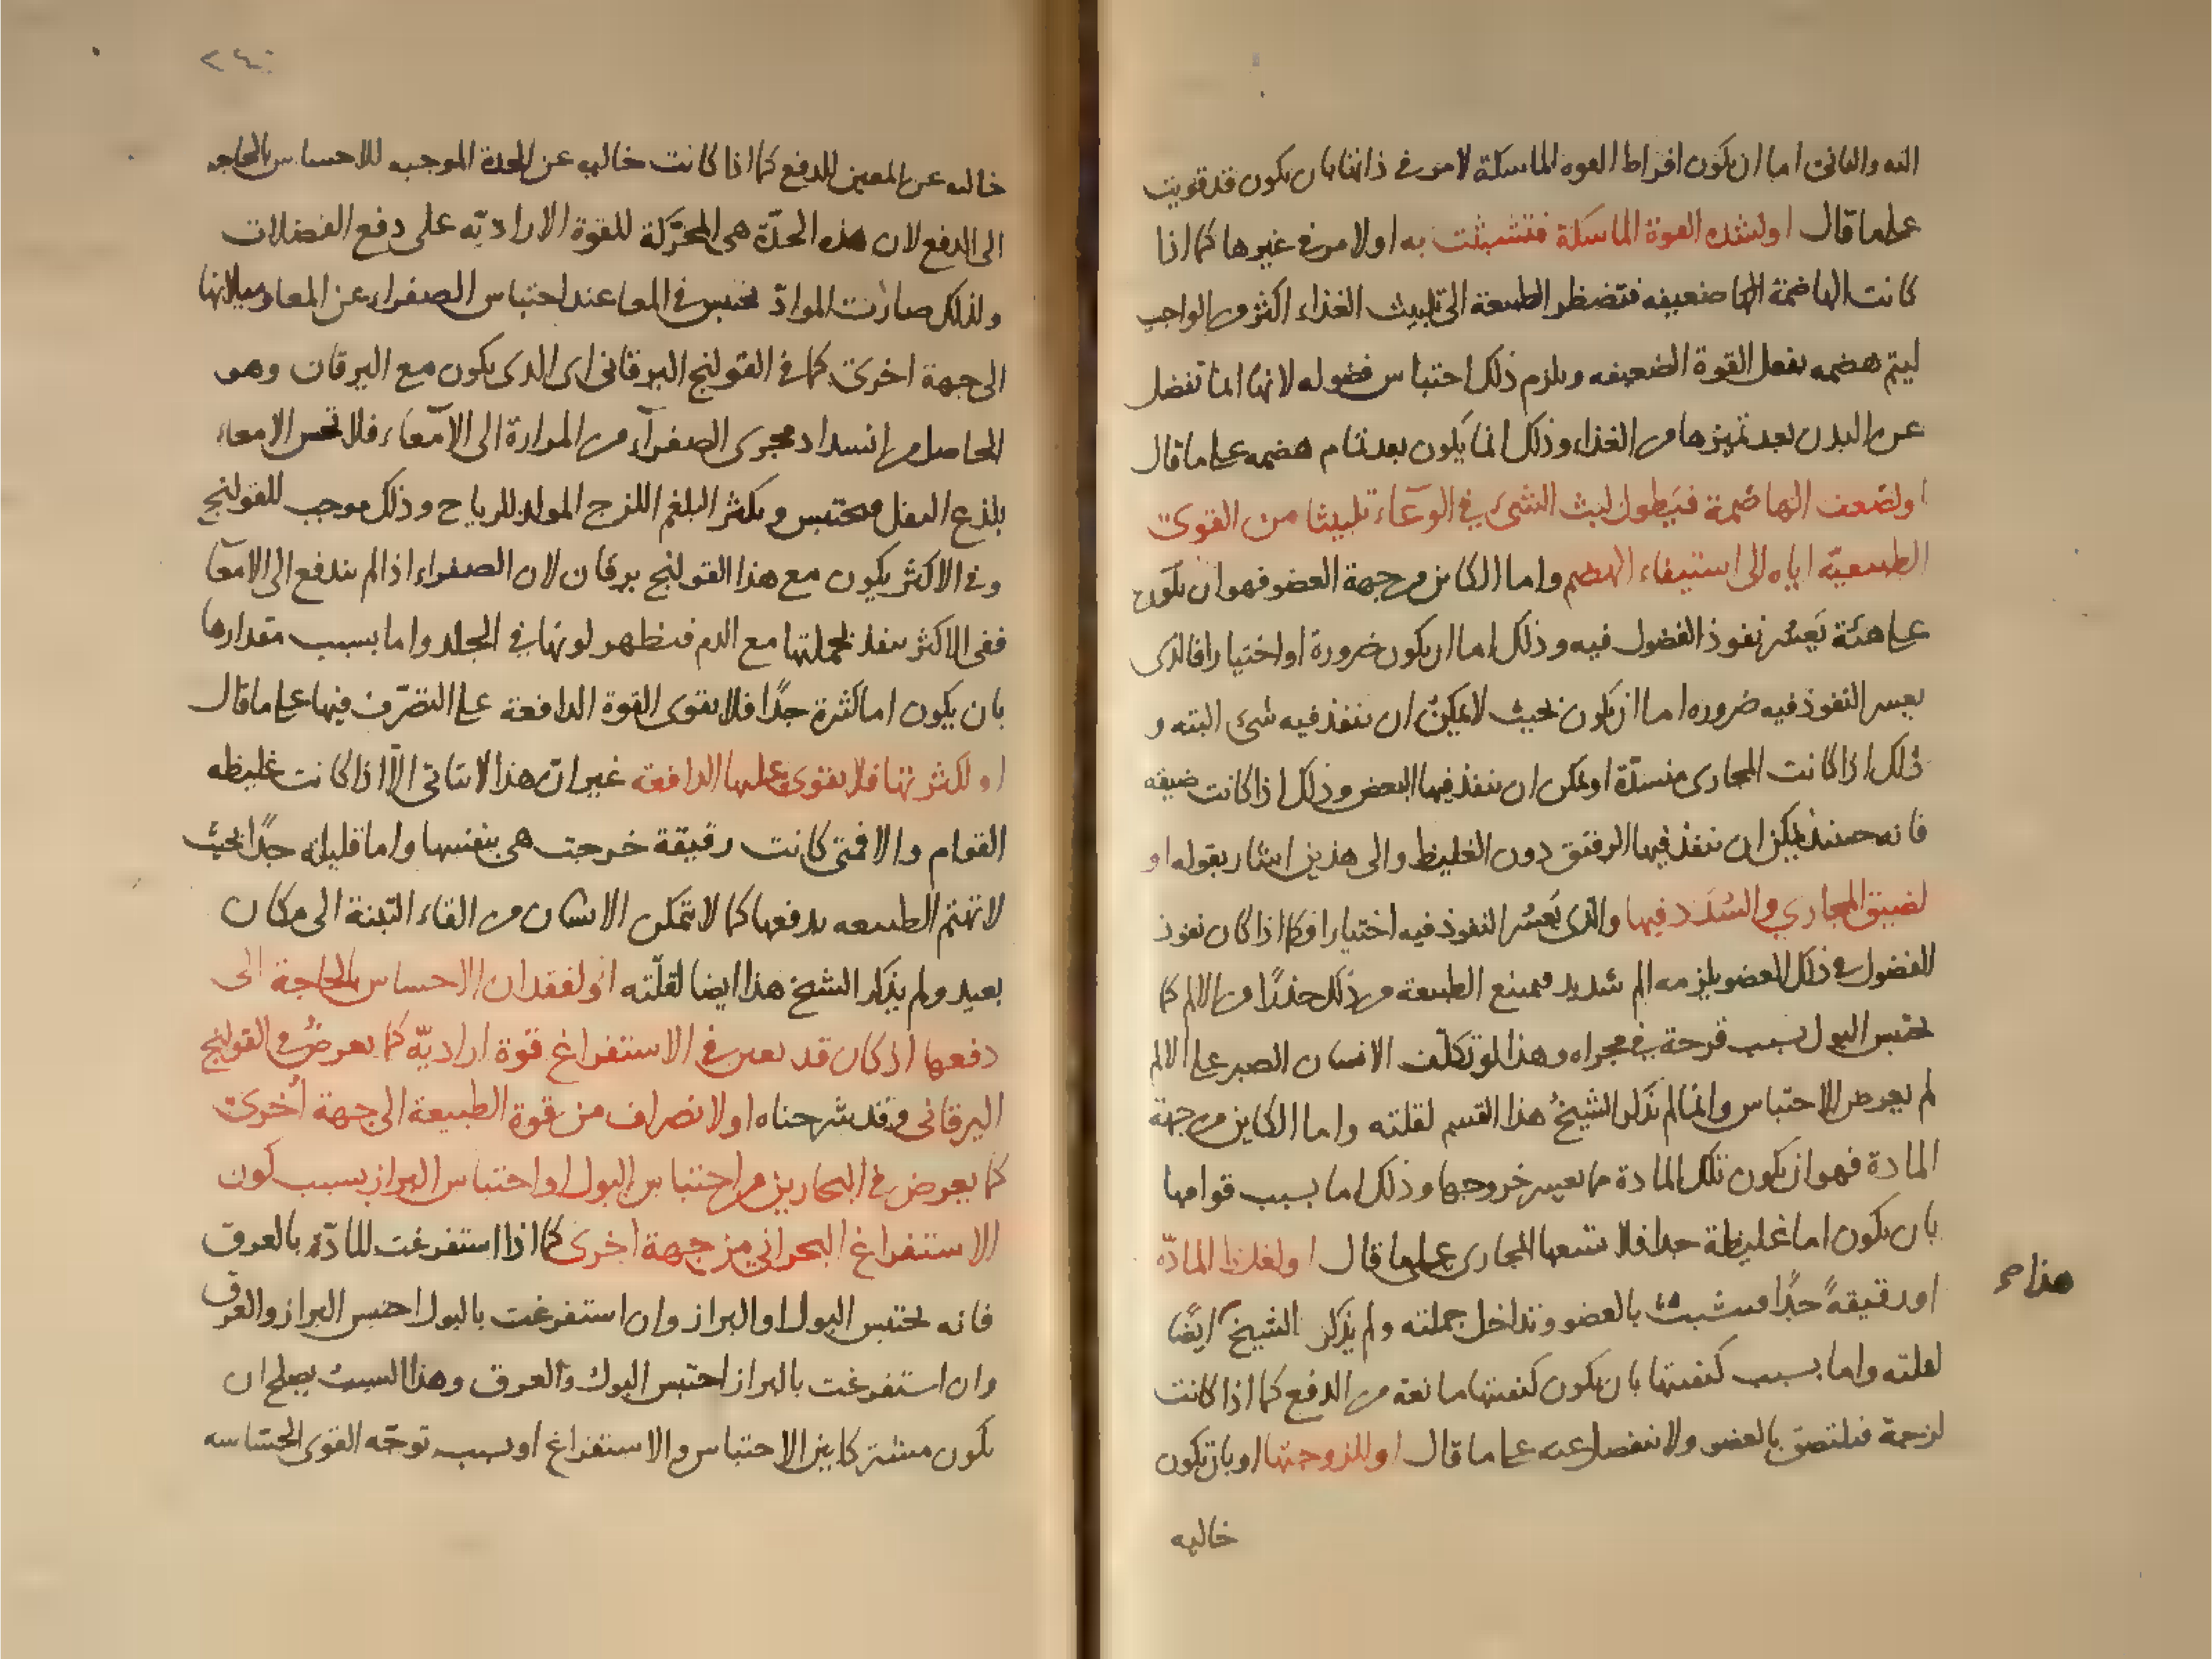 اليه والثانى اما ان يكون افراط القوه الماسكة لامر في ذاتها بان يكون قد قويت
على ما قال او لشده القوة الماسكة فتشبثت به او لامر في غيرها كما اذا
كانت الهاضمة لها ضعيفه فتضطر الطبيعة الى تلبيث الغذاء اكثر من الواجب
ليتم هضمه بفعل القوة الضعيفه ويلزم ذلك احتباس فضوله لانها انما تنفصل
عن البدن بعد تميزها من الغذاء وذلك انما يكون بعد تمام هضمه على ما قال
او لضعف الهاضمة فيطول لبث الشىء في الوعاء تلبيثا من القوى
الطبيعيّة اياه الى استيفاء الهضم واما الكاين من جهة العضو فهو ان يكون
على هيئة يَعسُر نفوذ الفضول فيه وذلك اما ان يكون ضرورة او اختيارا فالذى
يعسر النفوذ فيه ضروره اما ان يكون بحيث لا يمكن ان ينفذ فيه شىء البته و
ذلك اذا كانت المجارى منسدّة او يمكن ان ينفذ فيها البعض وذلك اذا كانت ضيقه
فانه حينئذ يمكن ان ينفذ فيها الرقيق دون الغليظ والى هذين اشار بقوله او
لضيق المجاري والسُدَد فيها والذى يَعسُر النفوذ فيه اختيارا فكما اذا كان نفوذ
الفضول في ذلك العضو يلزمه الم شديد فيمتنع الطبيعة من ذلك حذرًا من الالم كما
يحتبس البول بسبب قرحة في مجراه وهذا لو تكلّف الانسان الصبر على الالم
لم يعرض الاحتباس وانما لم يذكر الشيخُ هذا القسم لقلته واما الكاين من جهة
المادة فهو ان يكون تلك المادة مما يعسر خروجها وذلك اما بسبب قوامها
بان يكون اما غليظة جدا فلا تسعها المجارى على ما قال او لغلظ المادّه
او رقيقةً جدًّا فتتشبث بالعضو وتداخل جملته ولم يذكر الشيخ ايضًا
هذا صح
لقلته واما بسبب كيفيتها بان يكون كيفيتها مانعة من الدفع كما اذا كانت
لزجة فيلتصق بالعضو ولا ينفصل عنه على ما قال او للزوجتها او بان يكون
خاليه
٢٤٠
خاليه عن المعين للدفع كما اذا كانت خاليه عن الحدة الموجبه للاحساس بالحاجه
الى الدفع لان هذه الحدّة هى المحرّكة للقوة الاراديّه على دفع الفضلات
ولذلك صارت الموادّ تحتبس في المعا عند احتباس الصفراء عن المعا وميلانها
الى جهة اخرى كما في القولنج اليرقانى اى الذى يكون مع اليرقان وهو
الحاصل من انسداد مجرى الصفرآء من المرارة الى الامعآء فلا تحس الامعاء
بلذع الثفل فيحتبس ويكثر البلغم اللزج المولد للرياح وذلك موجب للقولنج
وفي الاكثر يكون مع هذا القولنج يرقان لان الصفراء اذا لم تندفع الى الامعآ
ففى الاكثر ينفذ بجملتها مع الدم فيظهر لونها في الجلد واما بسبب مقدارها
بان يكون اما كثرة جدًا فلا يقوى القوة الدافعة على التصرّف فيها على ما قال
او لكثرتها فلا يقوى عليها الدافعة غير انّ هذا لا يتاتى الّا اذا كانت غليظه
القوام والا فمتى كانت رقيقة خرجت هى بنفسها واما قليله جدًّا بحيث
لا تهتم الطبيعه بدفعها كما لا يتمكن الانسان من القاء التبنة الى مكان
بعيد ولم يذكر الشيخ هذا ايضا لقلّته او لفقدان الاحساس بالحاجة الى
دفعها اذ كان قد يعين في الاستفراغ قوة اراديّه كما يعرضُ في القولنج
اليرقانى وقد شرحناه او لانصراف من قوة الطبيعة الى جهة اُخرى
كما يعرض في البحارين من احتباس البول او احتباس البراز بسبب كون
الاستفراغ البحراني من جهة اخرى كما اذا استفرغت المادّة بالعرق
فانه يحتبس البول او البراز وان استفرغت بالبول احتبس البراز والعرق
وان استفرغت بالبراز احتبس البول والعرق وهذا السبب يصلح ان
يكون مشتركا بين الاحتباس والاستفراغ او بسبب توجّه القوى الحسّاسه